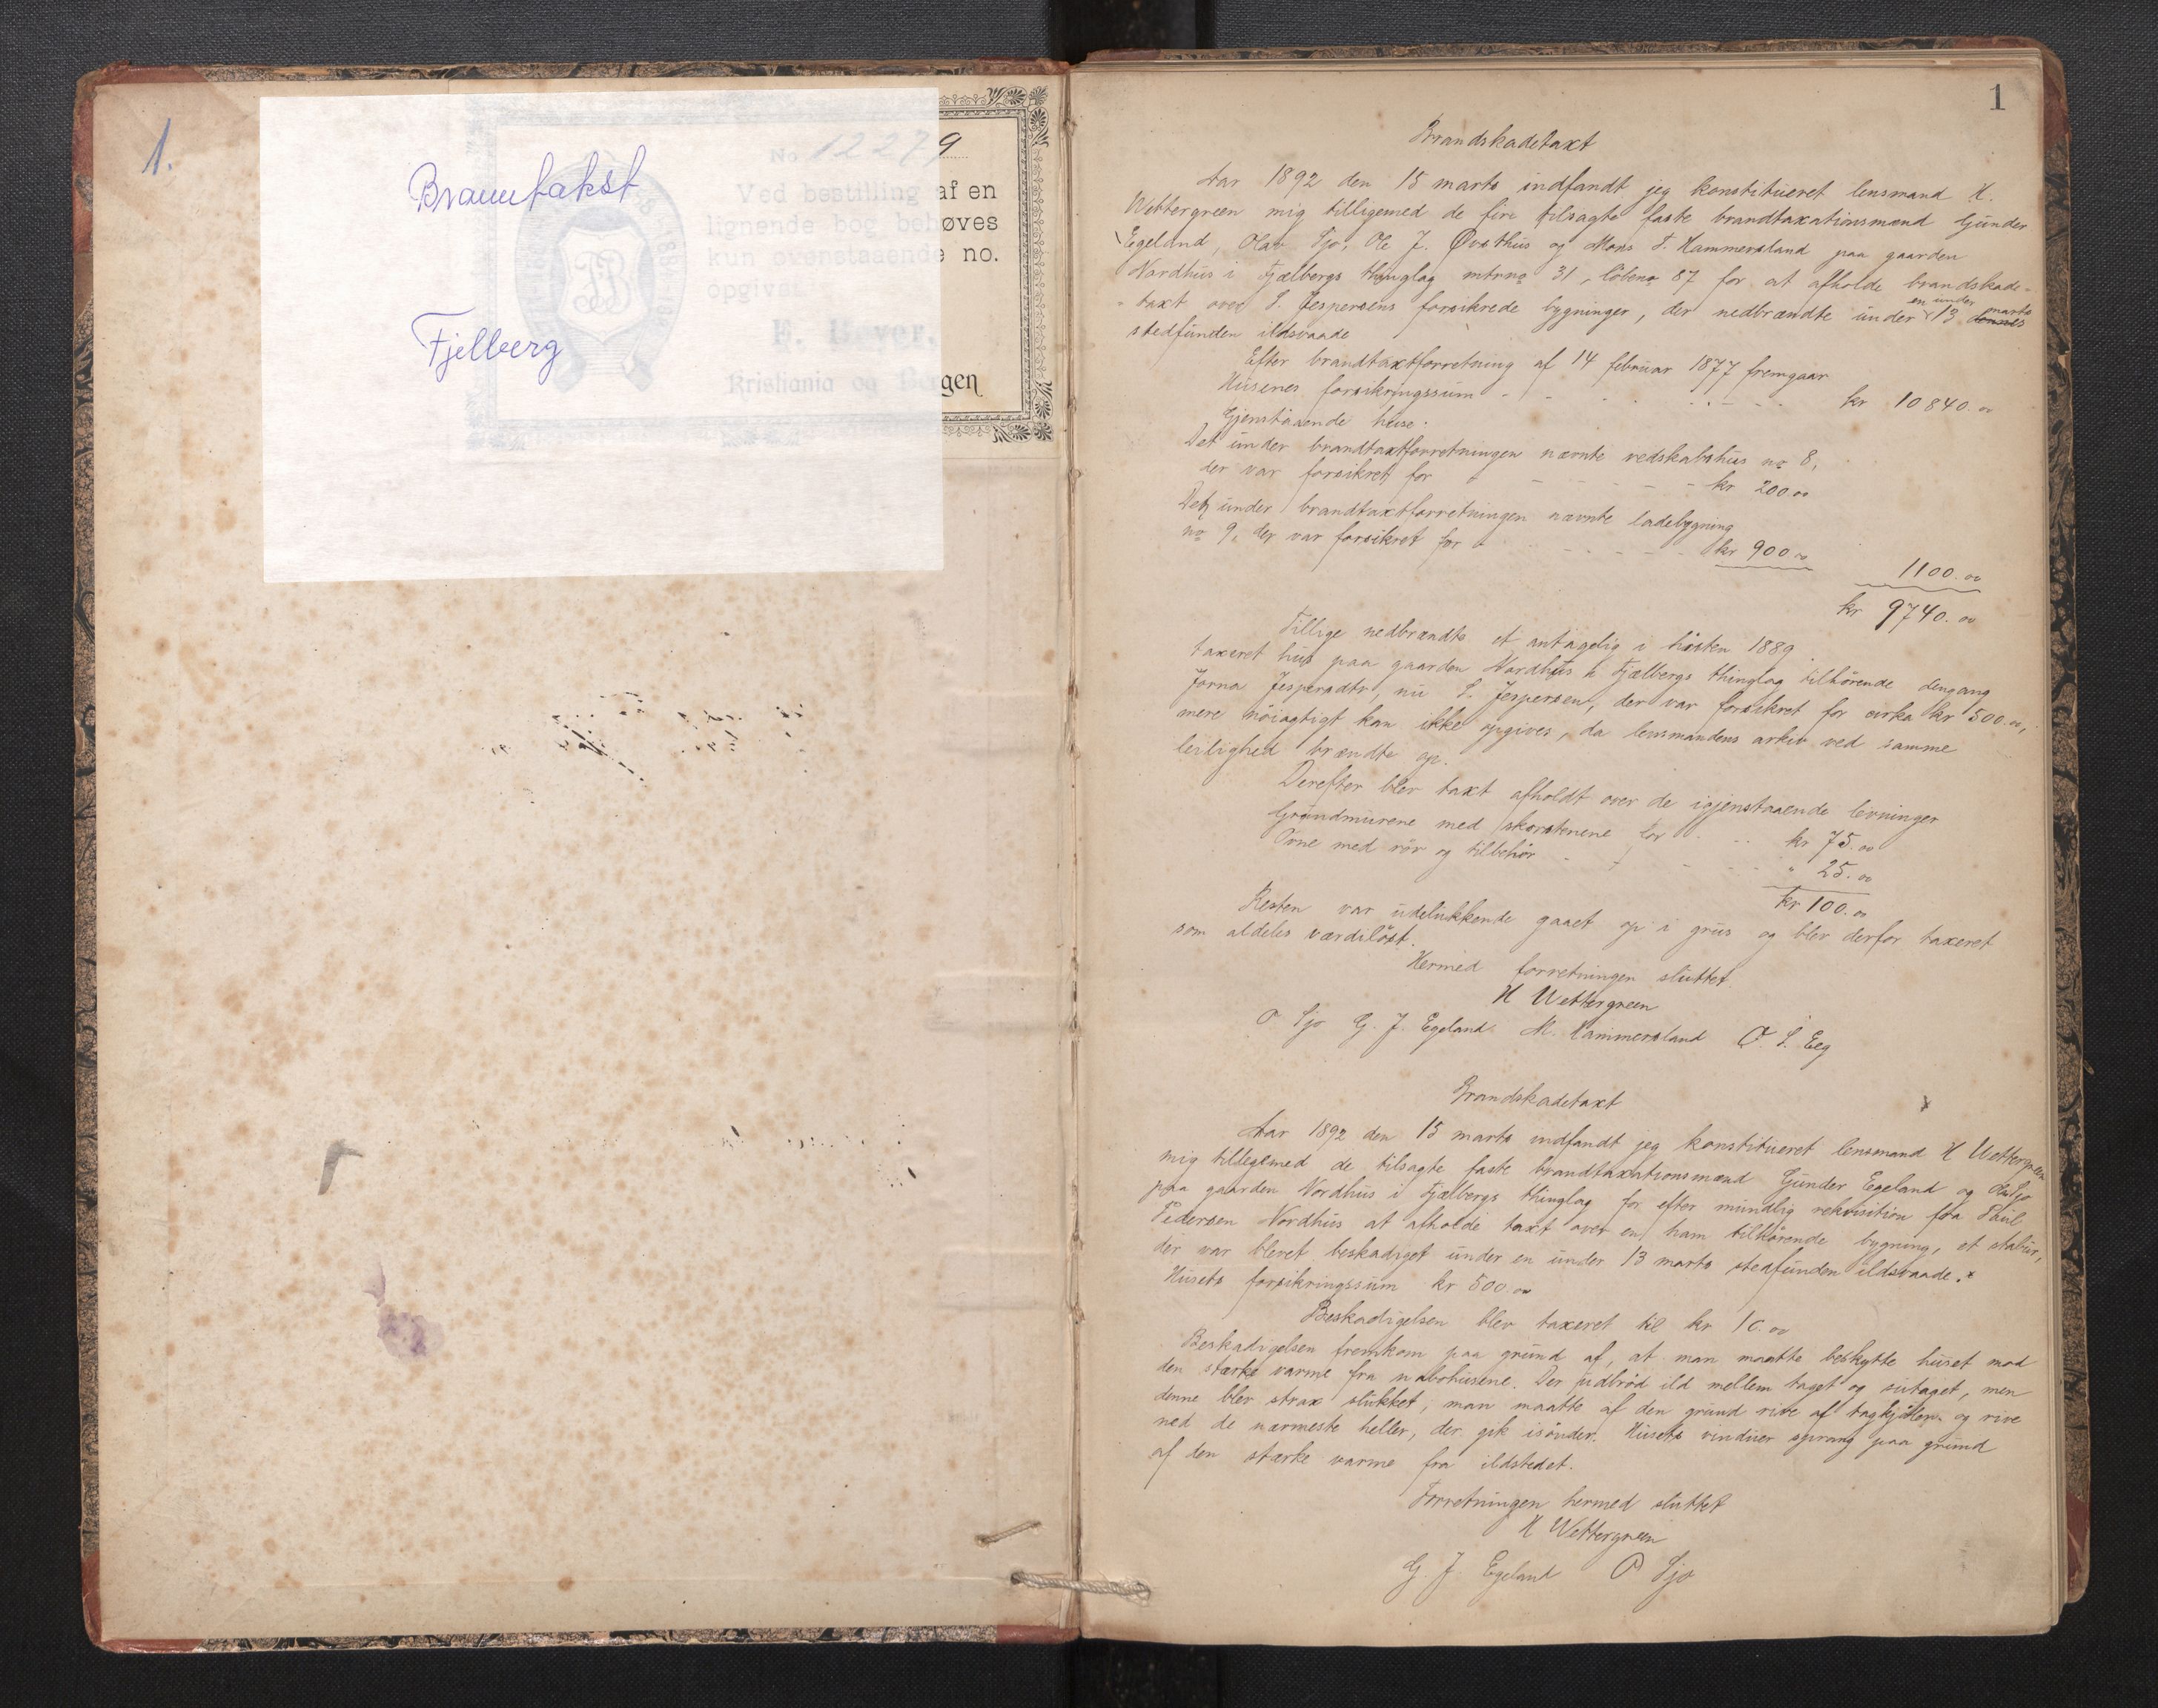 1.
Branntakst
Fjelberg
No 12279
Ved bestilling af en
lignende bog behøves
kun ovenstaaende no.
opgives
F. Beyer,
Kristiania og Bergen
1
Brandskadetaxt
Aar 1892 den 15 marts indfandt jeg konstitueret lensmand H.
Wettergreen mig tilligemed de fire tilsagte faste brandtaxationsmænd Gunder
Egeland, Olav Sjo, Ole J. Øvsthus og Mons T. Hammersland paa gaarden
Nordhus i Fjælbergs thinglag mtrno 31, löbeno 87 for at afholde brandskade-
taxt over S. Jespersens forsikrede bygninger, der nedbrændte under en under 13 marts dennes
stedfunden ildsvaade
Efter brandtaxtforretning af 14 februar 1877 fremgaar
Husenes forsikringssum - - - - - kr 10840.00
Gjenstaaende huse.
Det under brandtaxtforretningen nævnte redskabshus no 8,
der var forsikret for - - - - - - kr 200.00
Det under brandtaxtforretningen nævnte ladebygning
no 9, der var forsikret for - - - - - - kr 900.00
1100.00
kr 9740.00
Tillige nedbrændte et antagelig i hösten 1889
taxeret hus paa gaarden Nordhus i Fjælbergs thinglag tilhörende dengang
Jorna Jespersdtr, nu S. Jespersen, der var forsikret for cirka kr 500.00,
mere nöiagtigt kan ikke opgives, da lensmandens arkiv ved samme
leilighed brændte op.
Derefter blev taxt afholdt over de igjenstaaende levninger
Grundmurene med skorstenene for - - kr 75.00
Ovne med rör og tilbehör - - - - " 25.00
kr 100.00
Resten var udelukkende gaaet op i grus og blev derfor taxeret
som aldeles værdilöst.
Hermed forretningen sluttet.
H Wettergreen
O Sjo G. J. Egeland M. Hammersland O. S. Eeg
Brandskadetaxt
Aar 1892 den 15 marts indfandt jeg konstitueret lensmand H Wettergreen
mig tilligemed de tilsagte faste brandtaxationsmænd Gunder Egeland og Olav Sjo
paa gaarden Nordhus i Fjælbergs thinglag for efter mundlig rekvisition fra Poul
Pedersen Nordhus at afholde taxt over en ham tilhörende bygning, et stabur,
der var blevet beskadiget under en under 13 marts stedfunden ildsvaade.
Husets forsikringssum kr 500.00
Beskadigelsen blev taxeret til kr 10.00
Beskadigelsen fremkom paa grund af, at man maatte beskytte huset mod
den stærke varme fra nabohusene. Der udbröd ild mellem taget og sutaget, men
denne blev strax slukket; man maatte af den grund rive af tagkjölen og rive
ned de nærmeste heller, der gik isönder. Husets vinduer sprang paa grund
af den stærke varme fra ildstedet.
Forretningen hermed sluttet
H Wettergreen
G. J. Egeland O Sjo